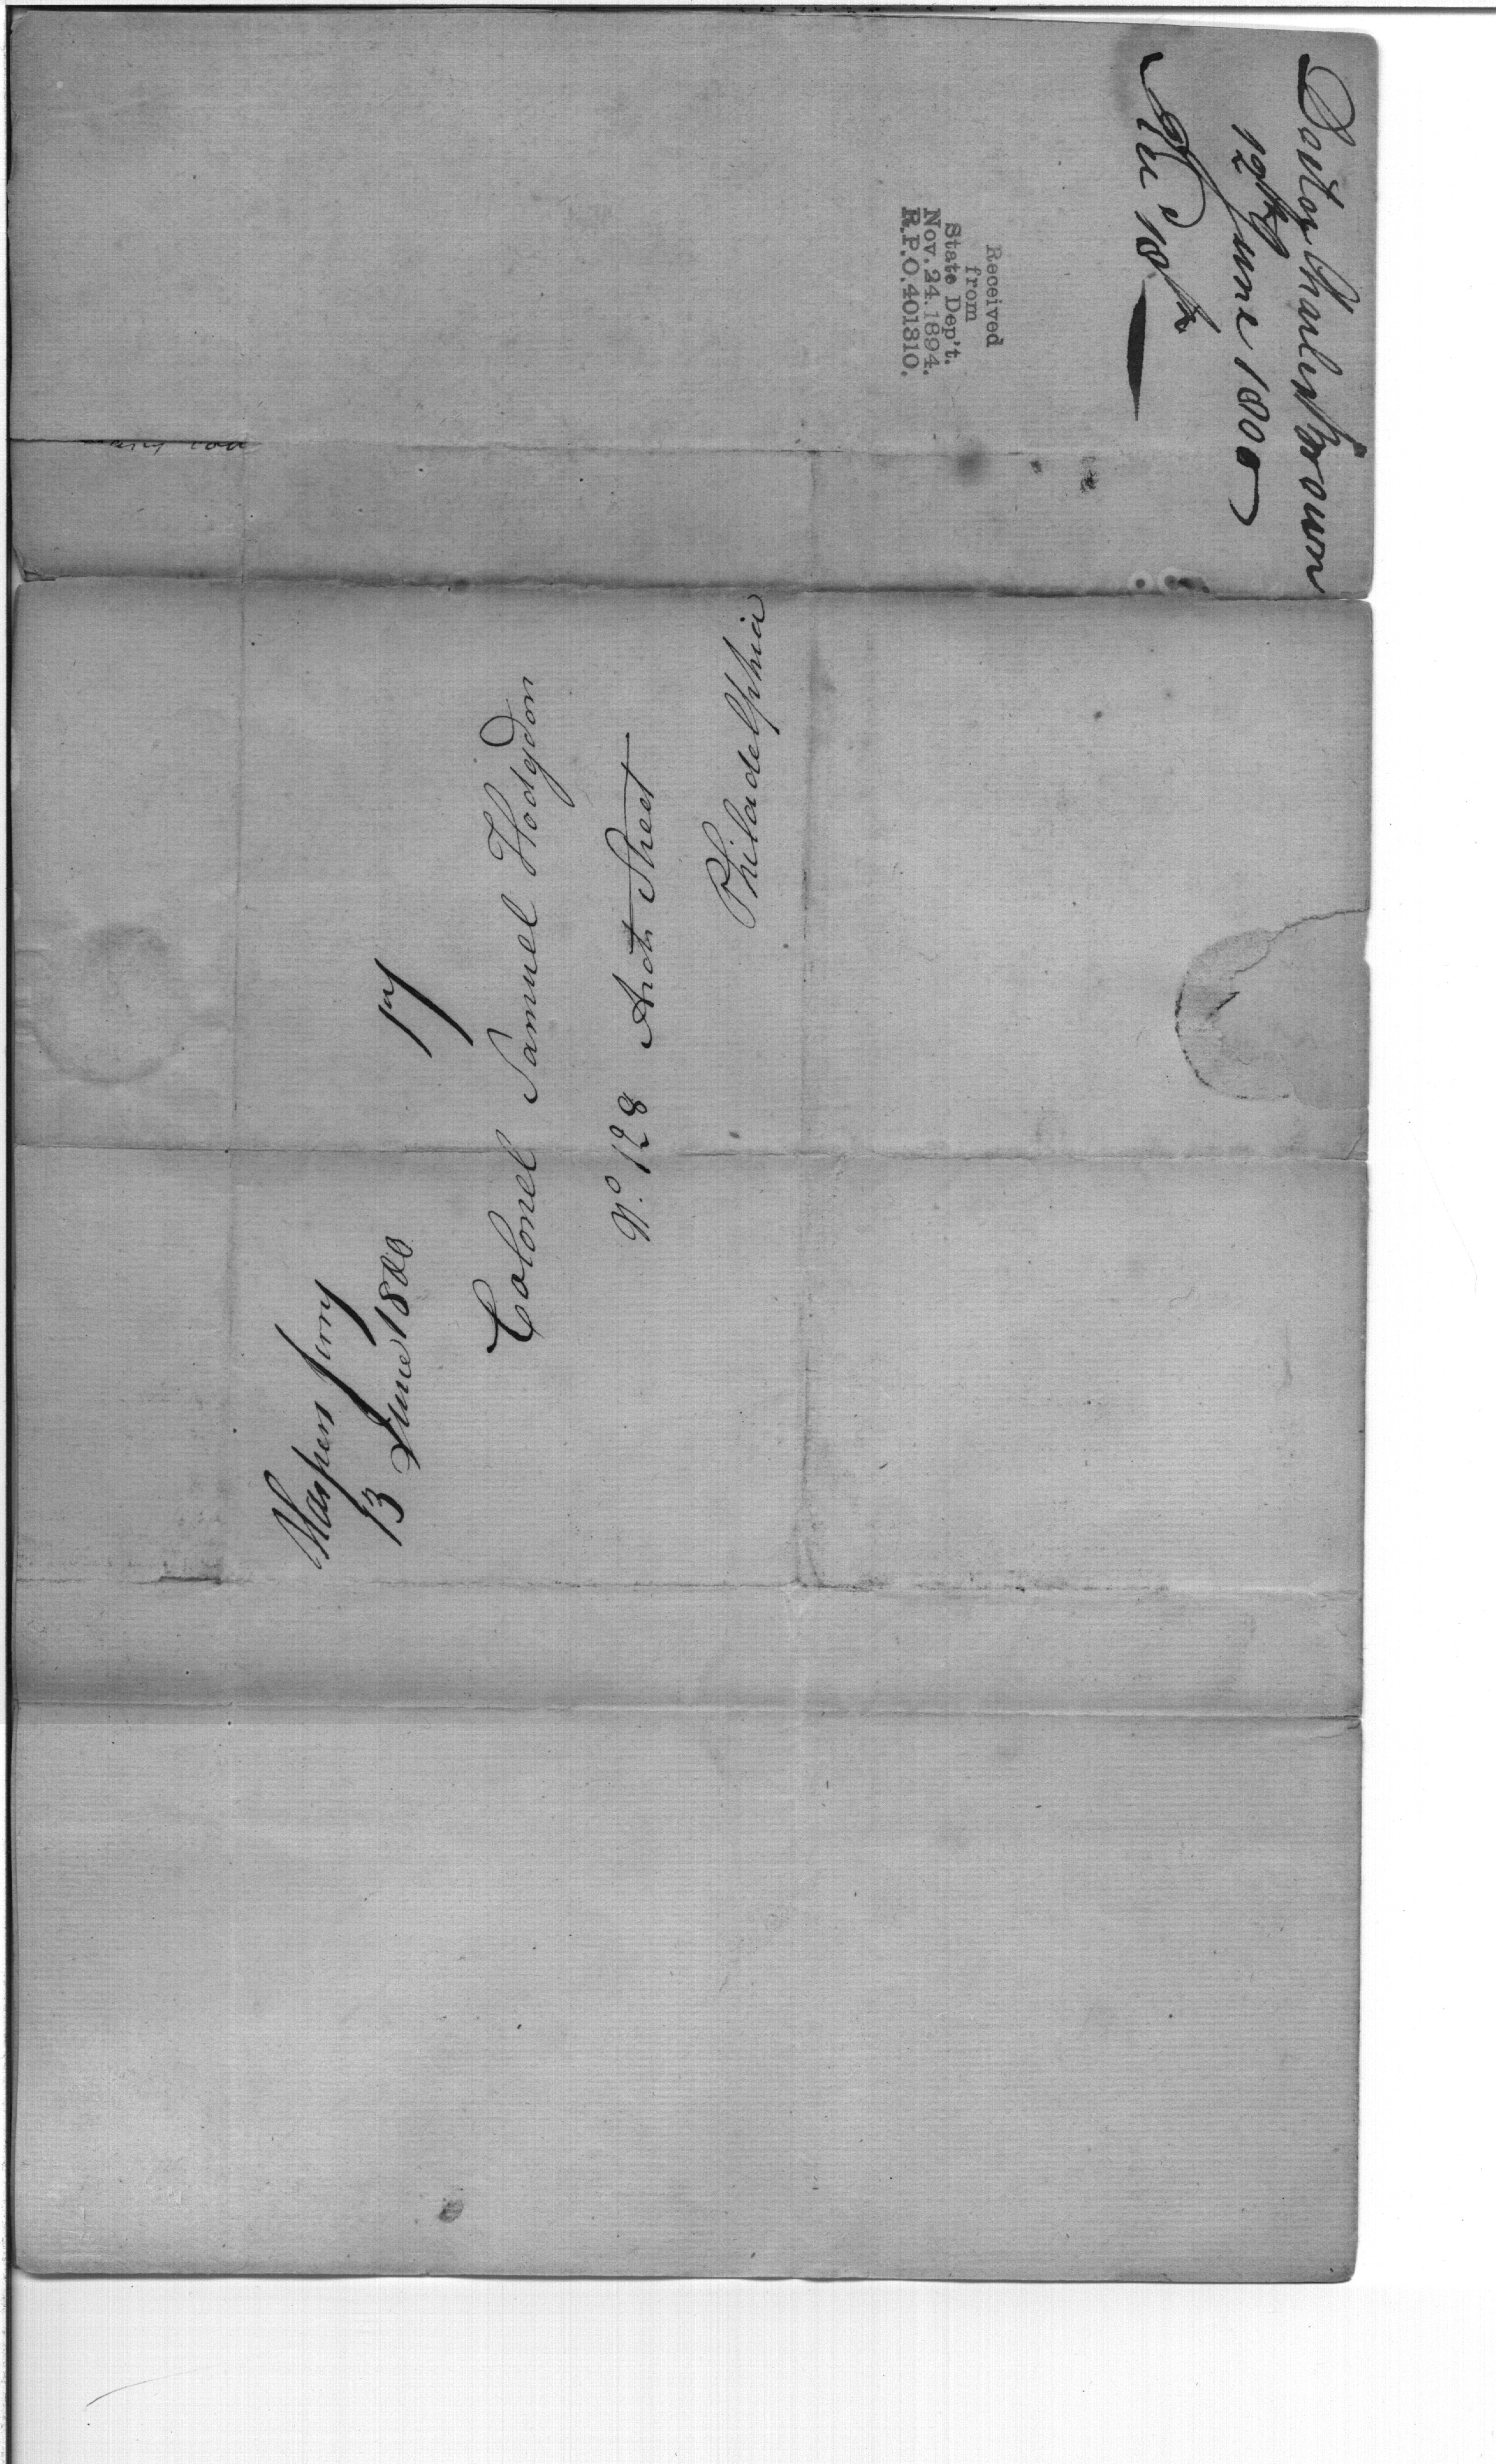 Doctor Charles Brown
12th June 1800
Rec'd 18th
Received
from
State Dep't.
Nov. 24. 1894.
R.P.O. 401310.
Harpers ferry
13 June 1800
17
Colonel Samuel Hodgdon
No. 128 Arch Street
Philadelphia